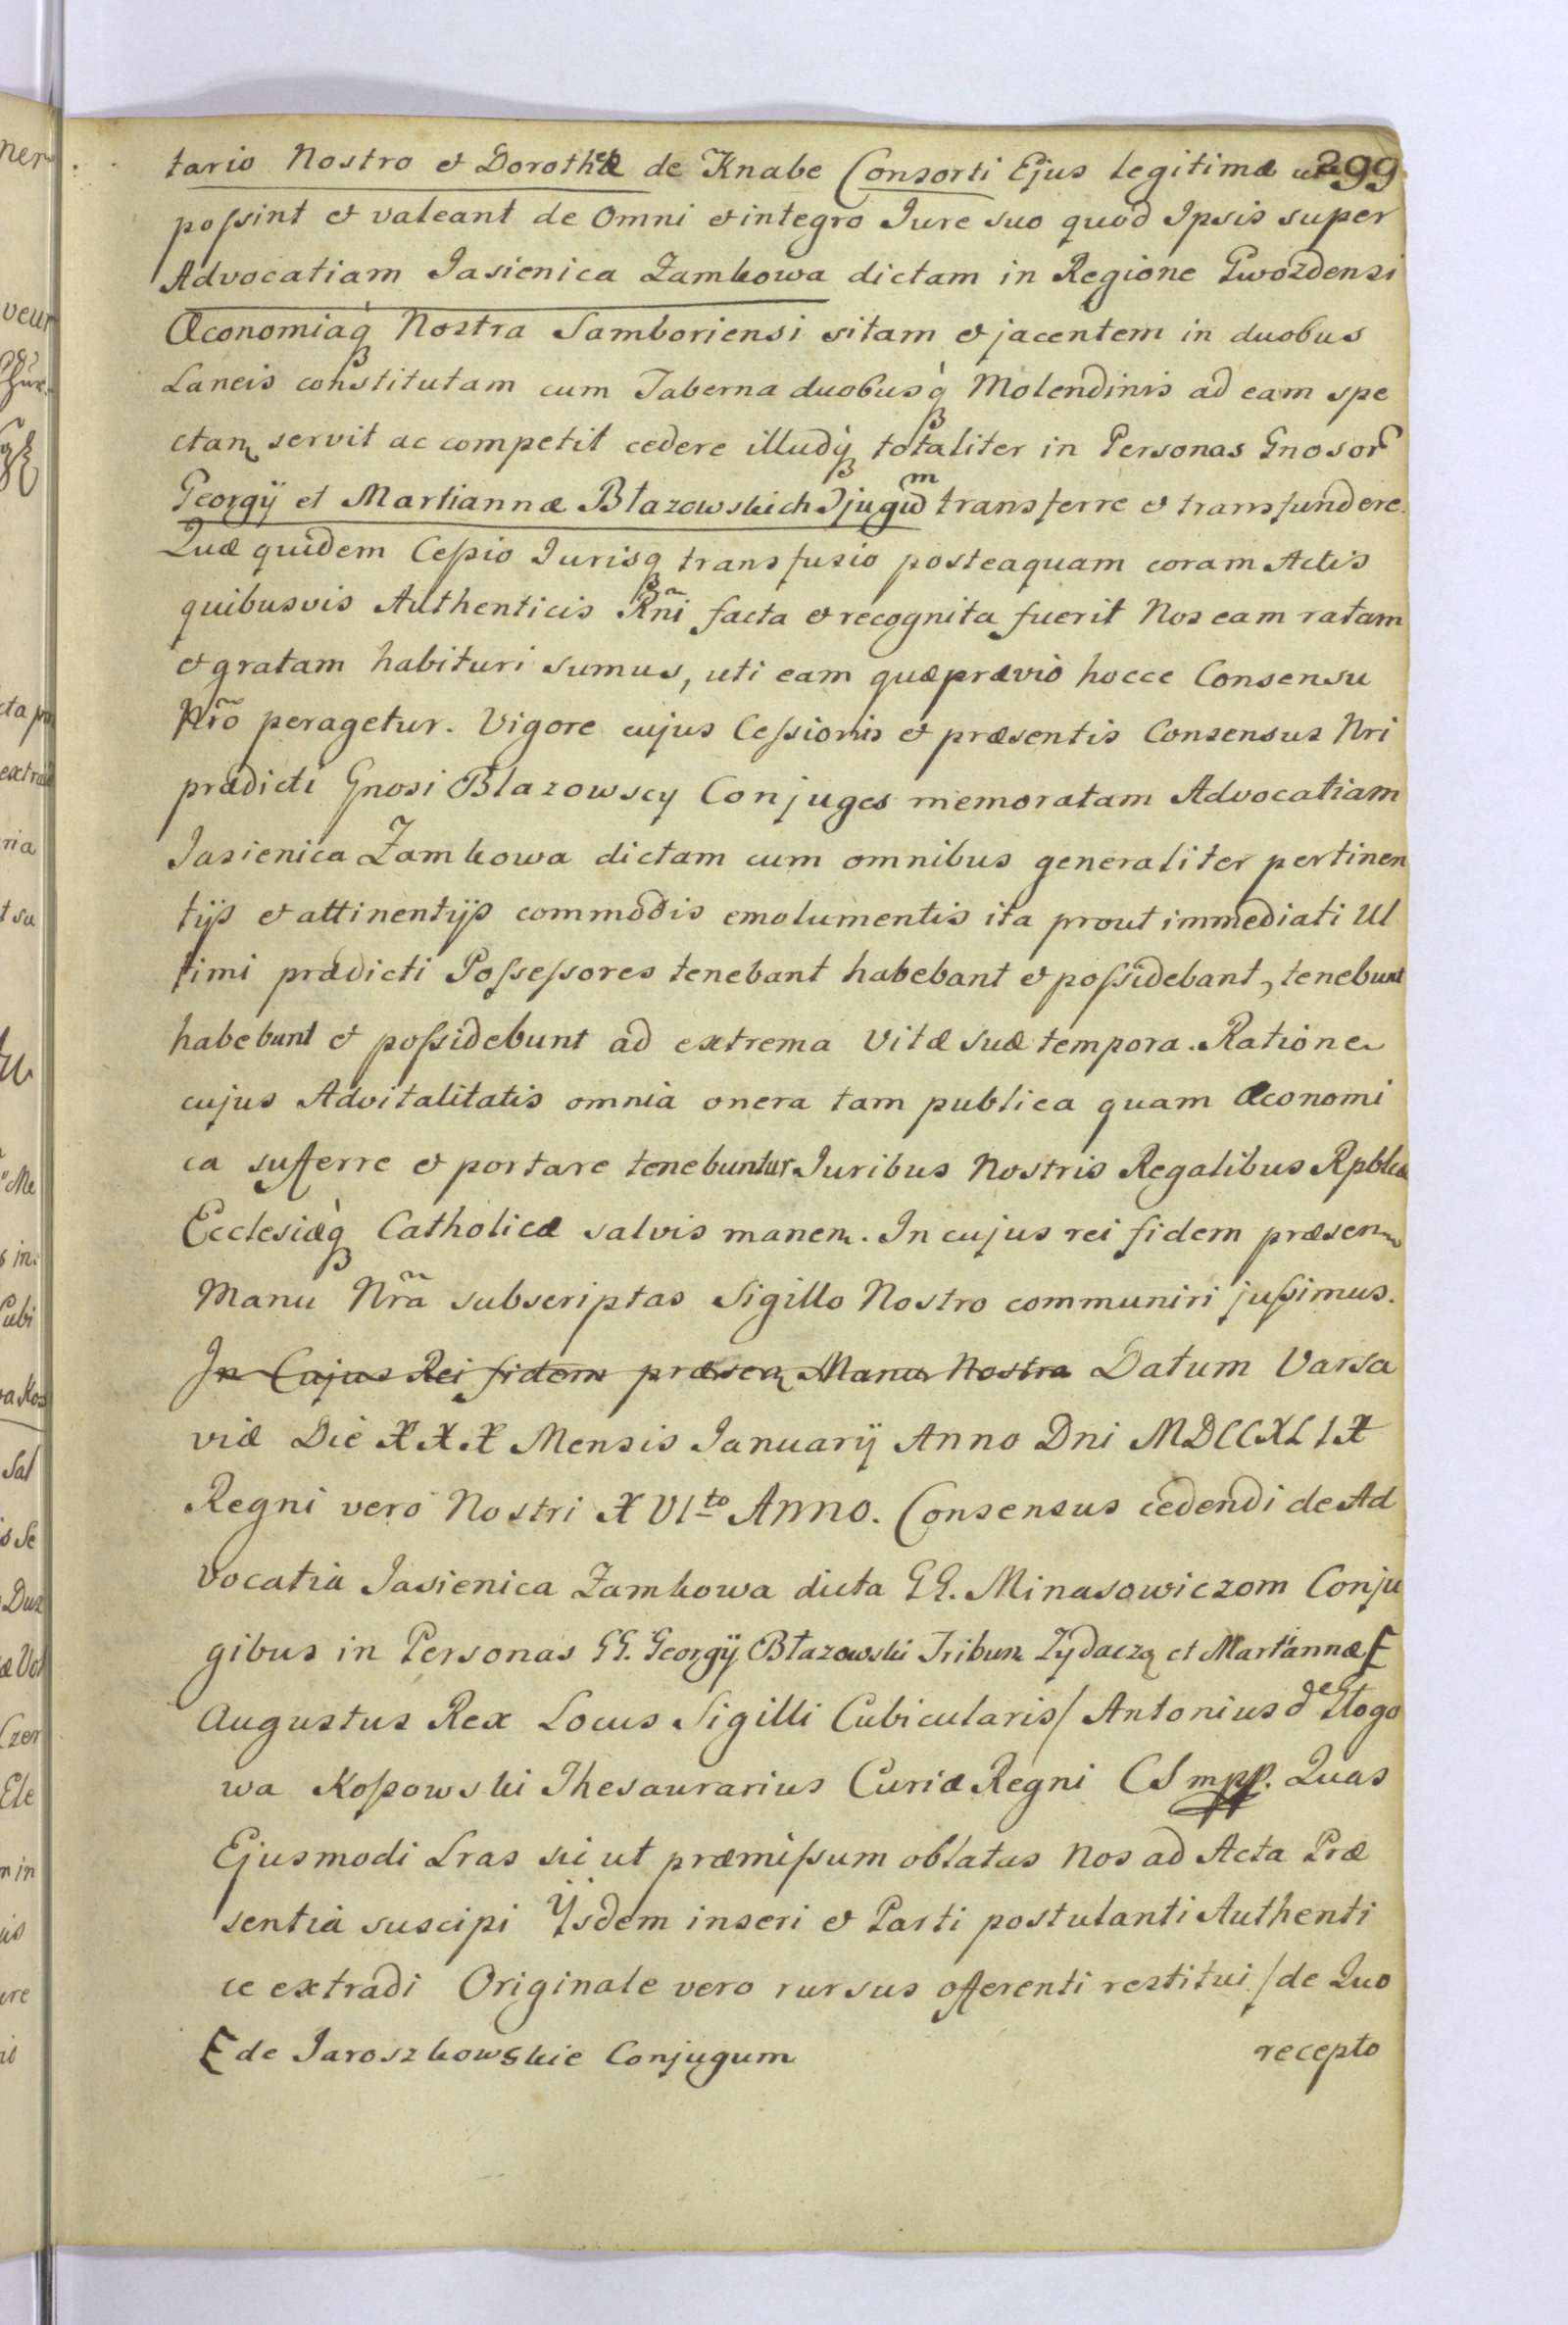 299
tario Nostro et Dorotheæ de Knabe Consorti Ejus legitimæ
poſsint et valeant de Omni et integro Iure suo quod Ipsis super
Advocatiam Jasienica Zamkowa dictam in Regione Gwozdensi
Œconomiaq́ Nostra Samboriensi sitam et jacentem in duobus
Laneis constitutam cum Taberna duobusq́ Molendinis ad eam spe
ctan servit ac competit cedere illudq́ totaliter in Personas Gnosor
Georgÿ et Mariannæ Błazowskich Cjugum transferre et transfundere.
Quæ quidem Ceſsio Iurisq transfusio posteaquam coram Actis
quibusvis Authenticis Rñi facta et recognita fuerit Nos eam ratam
et gratam habituri sumus, uti eam quæ prævio hocce Consensu
Nrõ peragetur. Vigore cujus Ceſsionis et præsentis Consensus Nri
prædicti Gnosi Blazowscy Conjuges memoratam Advocatiam
Jasienica Zamkowa dictam cum omnibus generaliter pertinen
tÿs et attinentÿs commodis emolumentis ita prout immediati Ul
timi prædicti Poſseſsores tenebant habebant et poſsidebant, tenebunt
habebunt et poſsidebunt ad extrema Vitæ suæ tempora. Ratione
cujus Advitalitatis omnia onera tam publica quam Œconomi
ca sufferre et portare tenebuntur Iuribus Nostris Regalibus Rpblcæ
Ecclesiæq́ Catholicæ salvis manen. In cujus rei fidem præsen
Manu Nrã subscriptas Sigillo Nostro communiri juſsimus.
In Cujus Rei fidem præsen Manu Nostra Datum Varsa
viæ Die XXX Mensis Ianuarÿ Anno Dni MDCCXLIX
Regni vero Nostri XVIto Anno. Consensus cedendi de Ad
vocatia Jasienica Zamkowa dicta GG. Minasowiczom Conju
gibus in Personas GG. Georgÿ Błazowski Tribun Zydacz et Mariannæ
Augustus Rex Locus Sigilli Cubicularis / Antonius de Głogo
wa Koſsowski Thesaurarius Curiæ Regni CS mpp. Quas
Ejusmodi Lras sic ut præmiſsum oblatas Nos ad Acta Præ
sentia suscipi Ÿsdem inseri et Parti postulanti Authenti
ce extradi Originale vero rursus offerenti restitui / de Quo
de Jaroszkowskie Conjugum
recepto